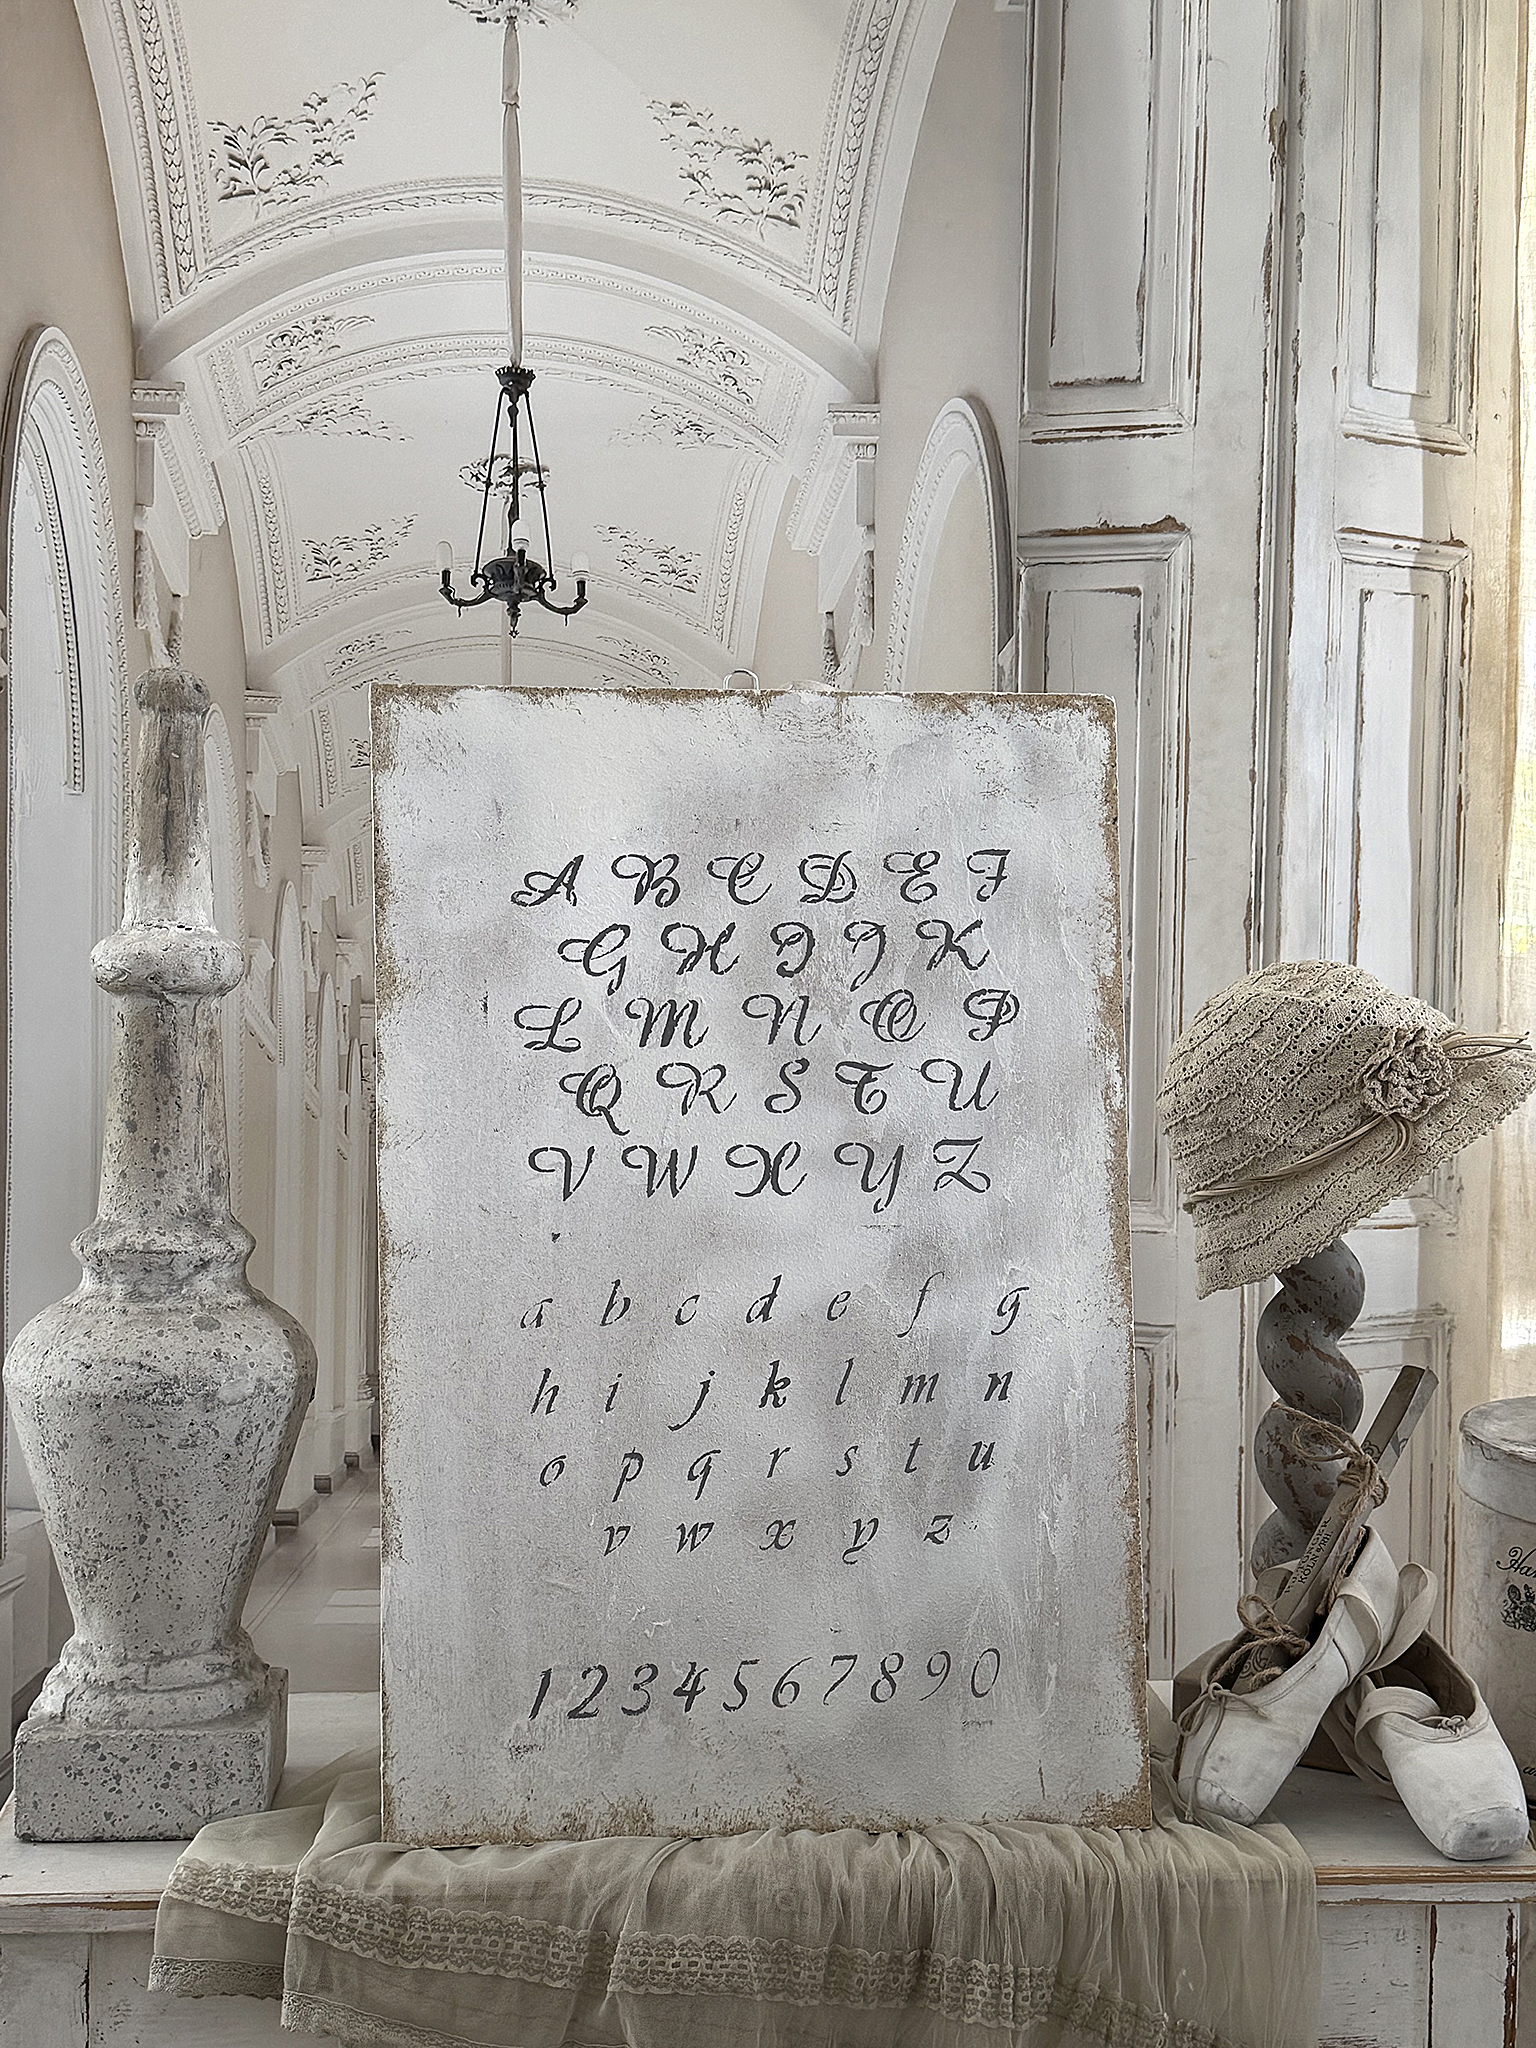 A B C D E F
G H I J K
L M N O P
Q R S T U
V W X Y Z
a b c d e f g
h i j k l m n
o p q r s t u
v w x y z
1 2 3 4 5 6 7 8 9 0
KÖLN